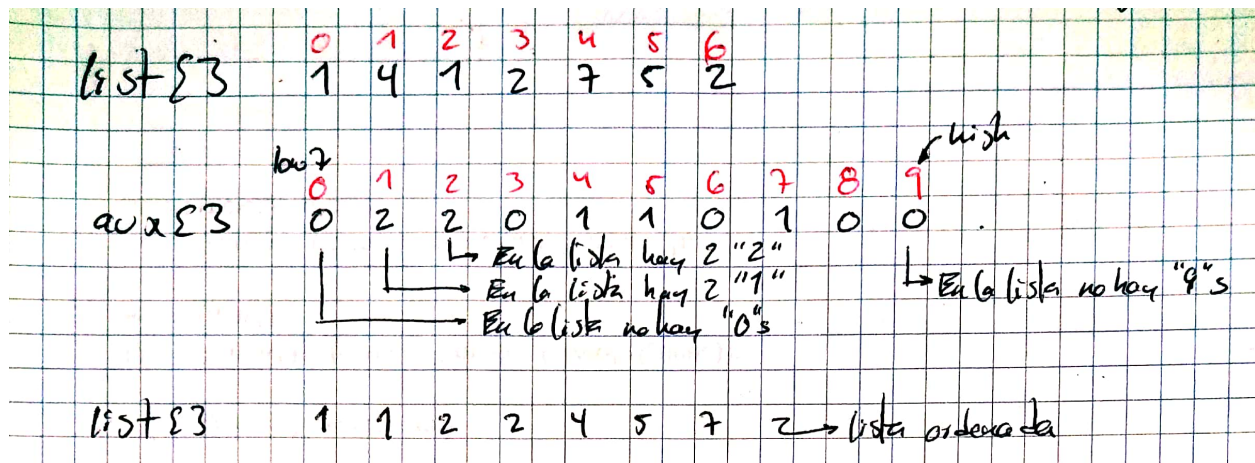 0 1 2 3 4 5 6
list{} 1 4 1 2 7 5 2
high
low
0 1 2 3 4 5 6 7 8 9
aux{} 0 2 2 0 1 1 0 1 0 0
En la lista hay 2 "2"
En la lista hay 2 "1"
En la lista no hay "9"s
En la lista no hay "0"s
list{} 1 1 2 2 4 5 7 lista ordenada